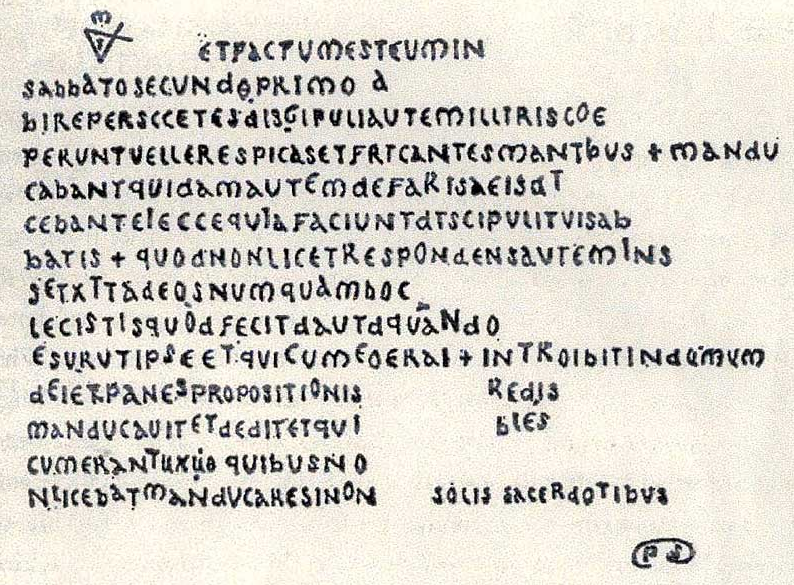 ETFACTUMESTEUMIN
SAbbATOSECUNdOPRIMO A
bIREPERSCCETESdISGIPULIAUTEMILLITRISCOE
PERUNTVELLERESPICASETFRTCANTESMANTbUS + MANdU
CAbANTQUIdAMAUTEMdEFARISAEISdT
CEbANTEIECCEQUIAFACIUNTdTSCIPULITVISAb
bATIS + QUOdNONLICETRESPONdENSAUTEMINS
SETXTTAdEOSNUMQUAMbOC
LECISTISQUOdFECITdAUTdQUANdO
ESURUTIPSEETQUICUMEOERAI + INTROIbITINdUMUM
dEIETPANESPROPOSITIONIS REdIS
MANdUCAUITETdEdITETQUI bLES
CUMERANTUXUO QUIbUSNO
NLICEbATMANdUCARESINON SOLIS SACERdOTIbUS
PS